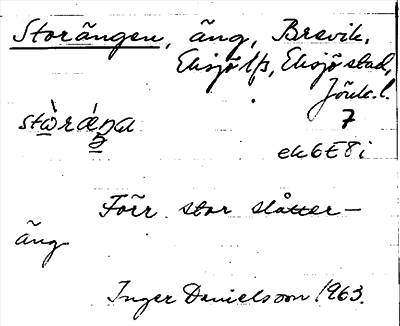 Storängen, äng, Brevik,
Eksjö lfs, Eksjö stad,
Jönk. l.
7
stὼráŋa
ek6E8i
Förr stor slåtter-
äng
Inger Danielsson 1963.